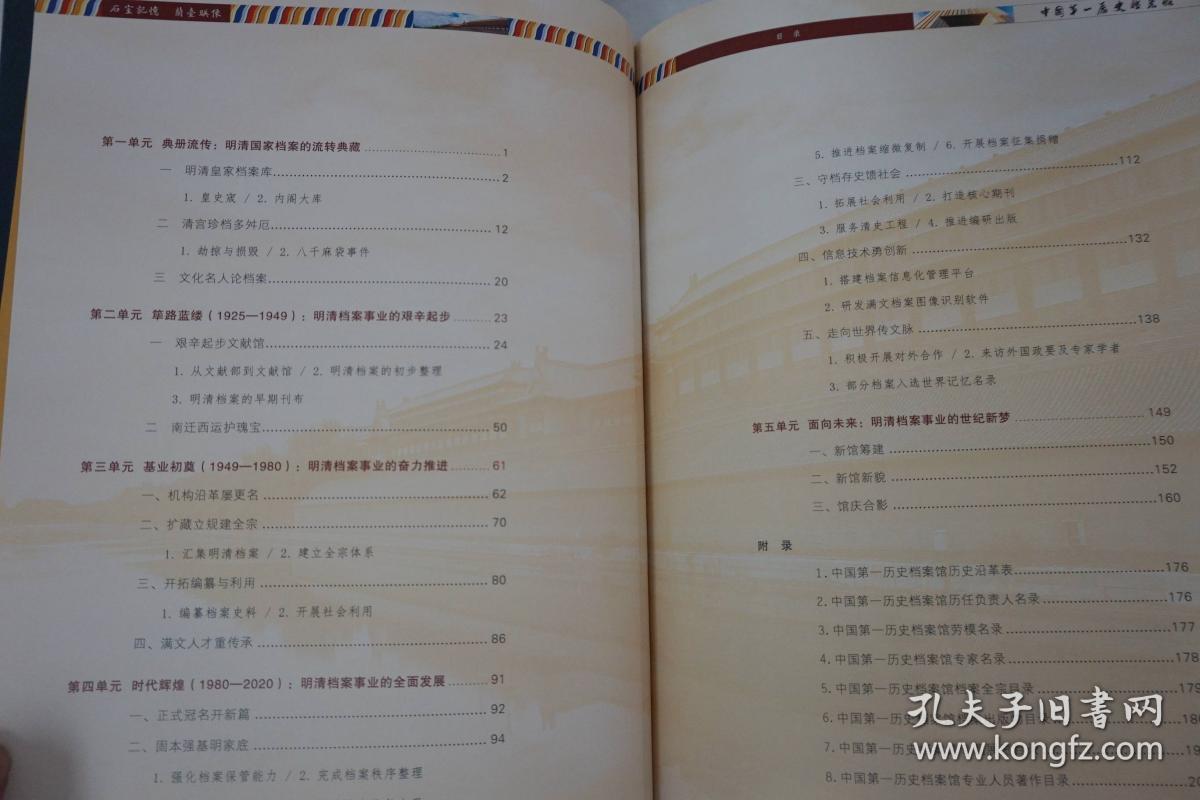 石室記憶 蘭臺映像
第一单元 典册流传：明清国家档案的流转典藏 1
一 明清皇家档案库 2
1. 皇史宬 / 2. 内阁大库
二 清宫珍档多舛厄 12
1. 劫掠与损毁 / 2. 八千麻袋事件
三 文化名人论档案 20
第二单元 筚路蓝缕（1925—1949）：明清档案事业的艰辛起步 23
一 艰辛起步文献馆 24
1. 从文献部到文献馆 / 2. 明清档案的初步整理
3. 明清档案的早期刊布
二 南迁西运护瑰宝 50
第三单元 基业初奠（1949—1980）：明清档案事业的奋力推进 61
一、机构沿革屡更名 62
二、扩藏立规建全宗 70
1. 汇集明清档案 / 2. 建立全宗体系
三、开拓编纂与利用 80
1. 编纂档案史料 / 2. 开展社会利用
四、满文人才重传承 86
第四单元 时代辉煌（1980—2020）：明清档案事业的全面发展 91
一、正式冠名开新篇 92
二、固本强基明家底 94
1. 强化档案保管能力 / 2. 完成档案秩序整理
目 录
5. 推进档案缩微复制 / 6. 开展档案征集捐赠
三、守档存史馈社会 112
1. 拓展社会利用 / 2. 打造核心期刊
3. 服务清史工程 / 4. 推进编研出版
四、信息技术勇创新 132
1. 搭建档案信息化管理平台
2. 研发满文档案图像识别软件
五、走向世界传文脉 138
1. 积极开展对外合作 / 2. 来访外国政要及专家学者
3. 部分档案入选世界记忆名录
第五单元 面向未来：明清档案事业的世纪新梦 149
一、新馆筹建 150
二、新馆新貌 152
三、馆庆合影 160
附 录
1. 中国第一历史档案馆历史沿革表 176
2. 中国第一历史档案馆历任负责人名录 176
3. 中国第一历史档案馆劳模名录 177
4. 中国第一历史档案馆专家名录 178
5. 中国第一历史档案馆档案全宗目录 179
6. 中国第一历史档案馆 出版 目录
7. 中国第一历史档案馆
8. 中国第一历史档案馆专业人员著作目录
孔夫子旧书网
www.kongfz.com